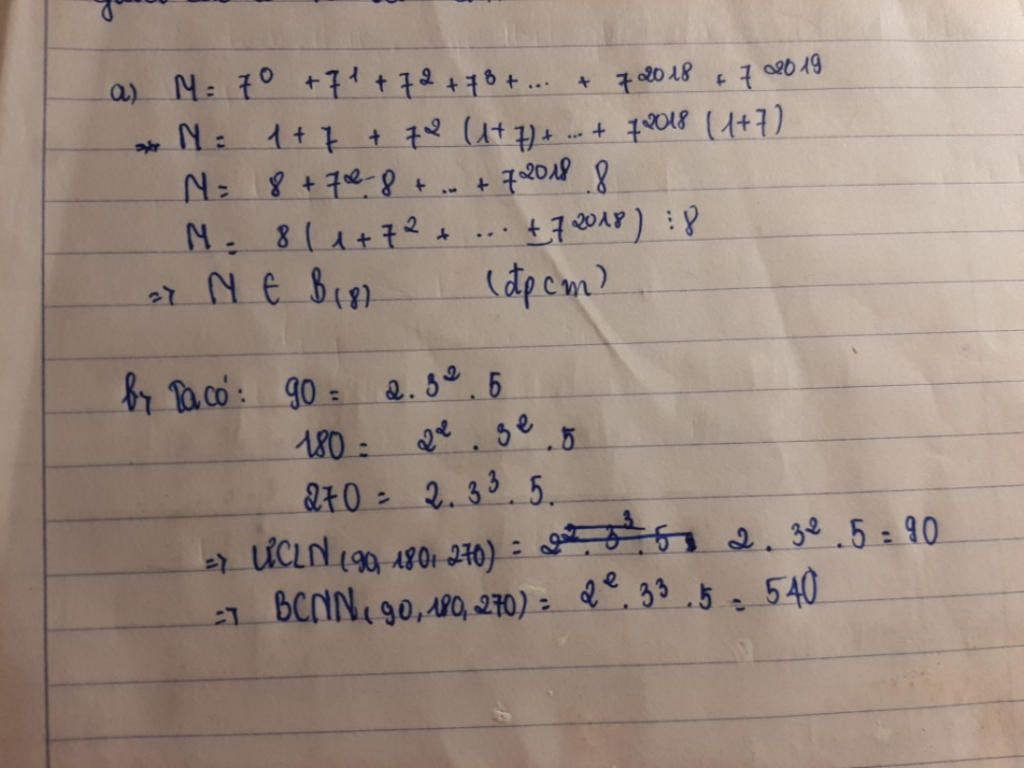 a) M = 7⁰ + 7¹ + 7² + 7³ + ... + 7²⁰¹⁸ + 7²⁰¹⁹
M = 1 + 7 + 7² (1+7) + ... + 7²⁰¹⁸ (1+7)
M = 8 + 7².8 + ... + 7²⁰¹⁸.8
M = 8(1 + 7² + ... + 7²⁰¹⁸) ⋮ 8
=> M ∈ B(8) (đpcm)
b, Ta có: 90 = 2.3².5
180 = 2².3².5
270 = 2.3³.5.
=> ƯCLN(90,180,270) = 2.3².5 = 90
=> BCNN(90,180,270) = 2².3³.5 = 540